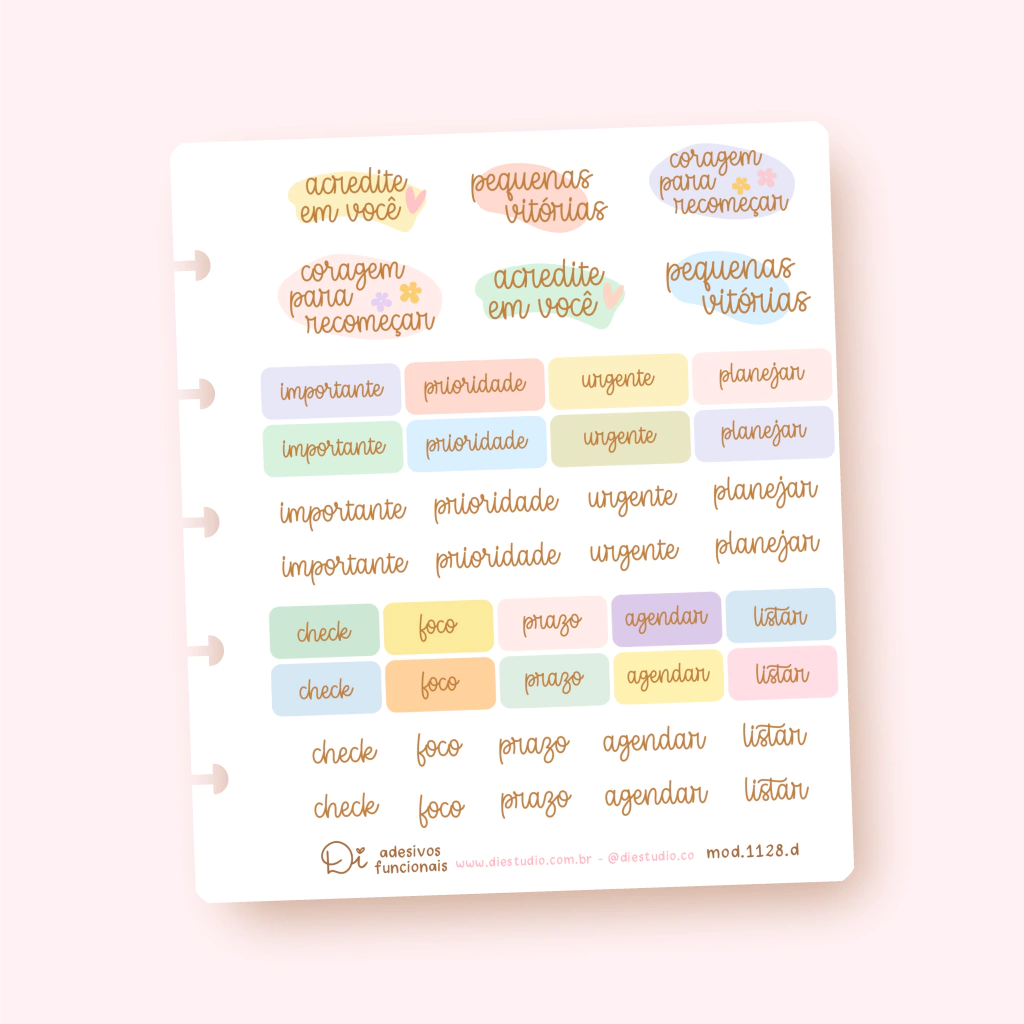 acredite
em você
pequenas
vitórias
coragem
para
recomeçar
coragem
para
recomeçar
acredite
em você
pequenas
vitórias
importante prioridade urgente planejar
importante prioridade urgente planejar
importante prioridade urgente planejar
importante prioridade urgente planejar
check foco prazo agendar listar
check foco prazo agendar listar
check foco prazo agendar listar
check foco prazo agendar listar
Di adesivos
funcionais www.diestudio.com.br - @diestudio.co mod.1128.d